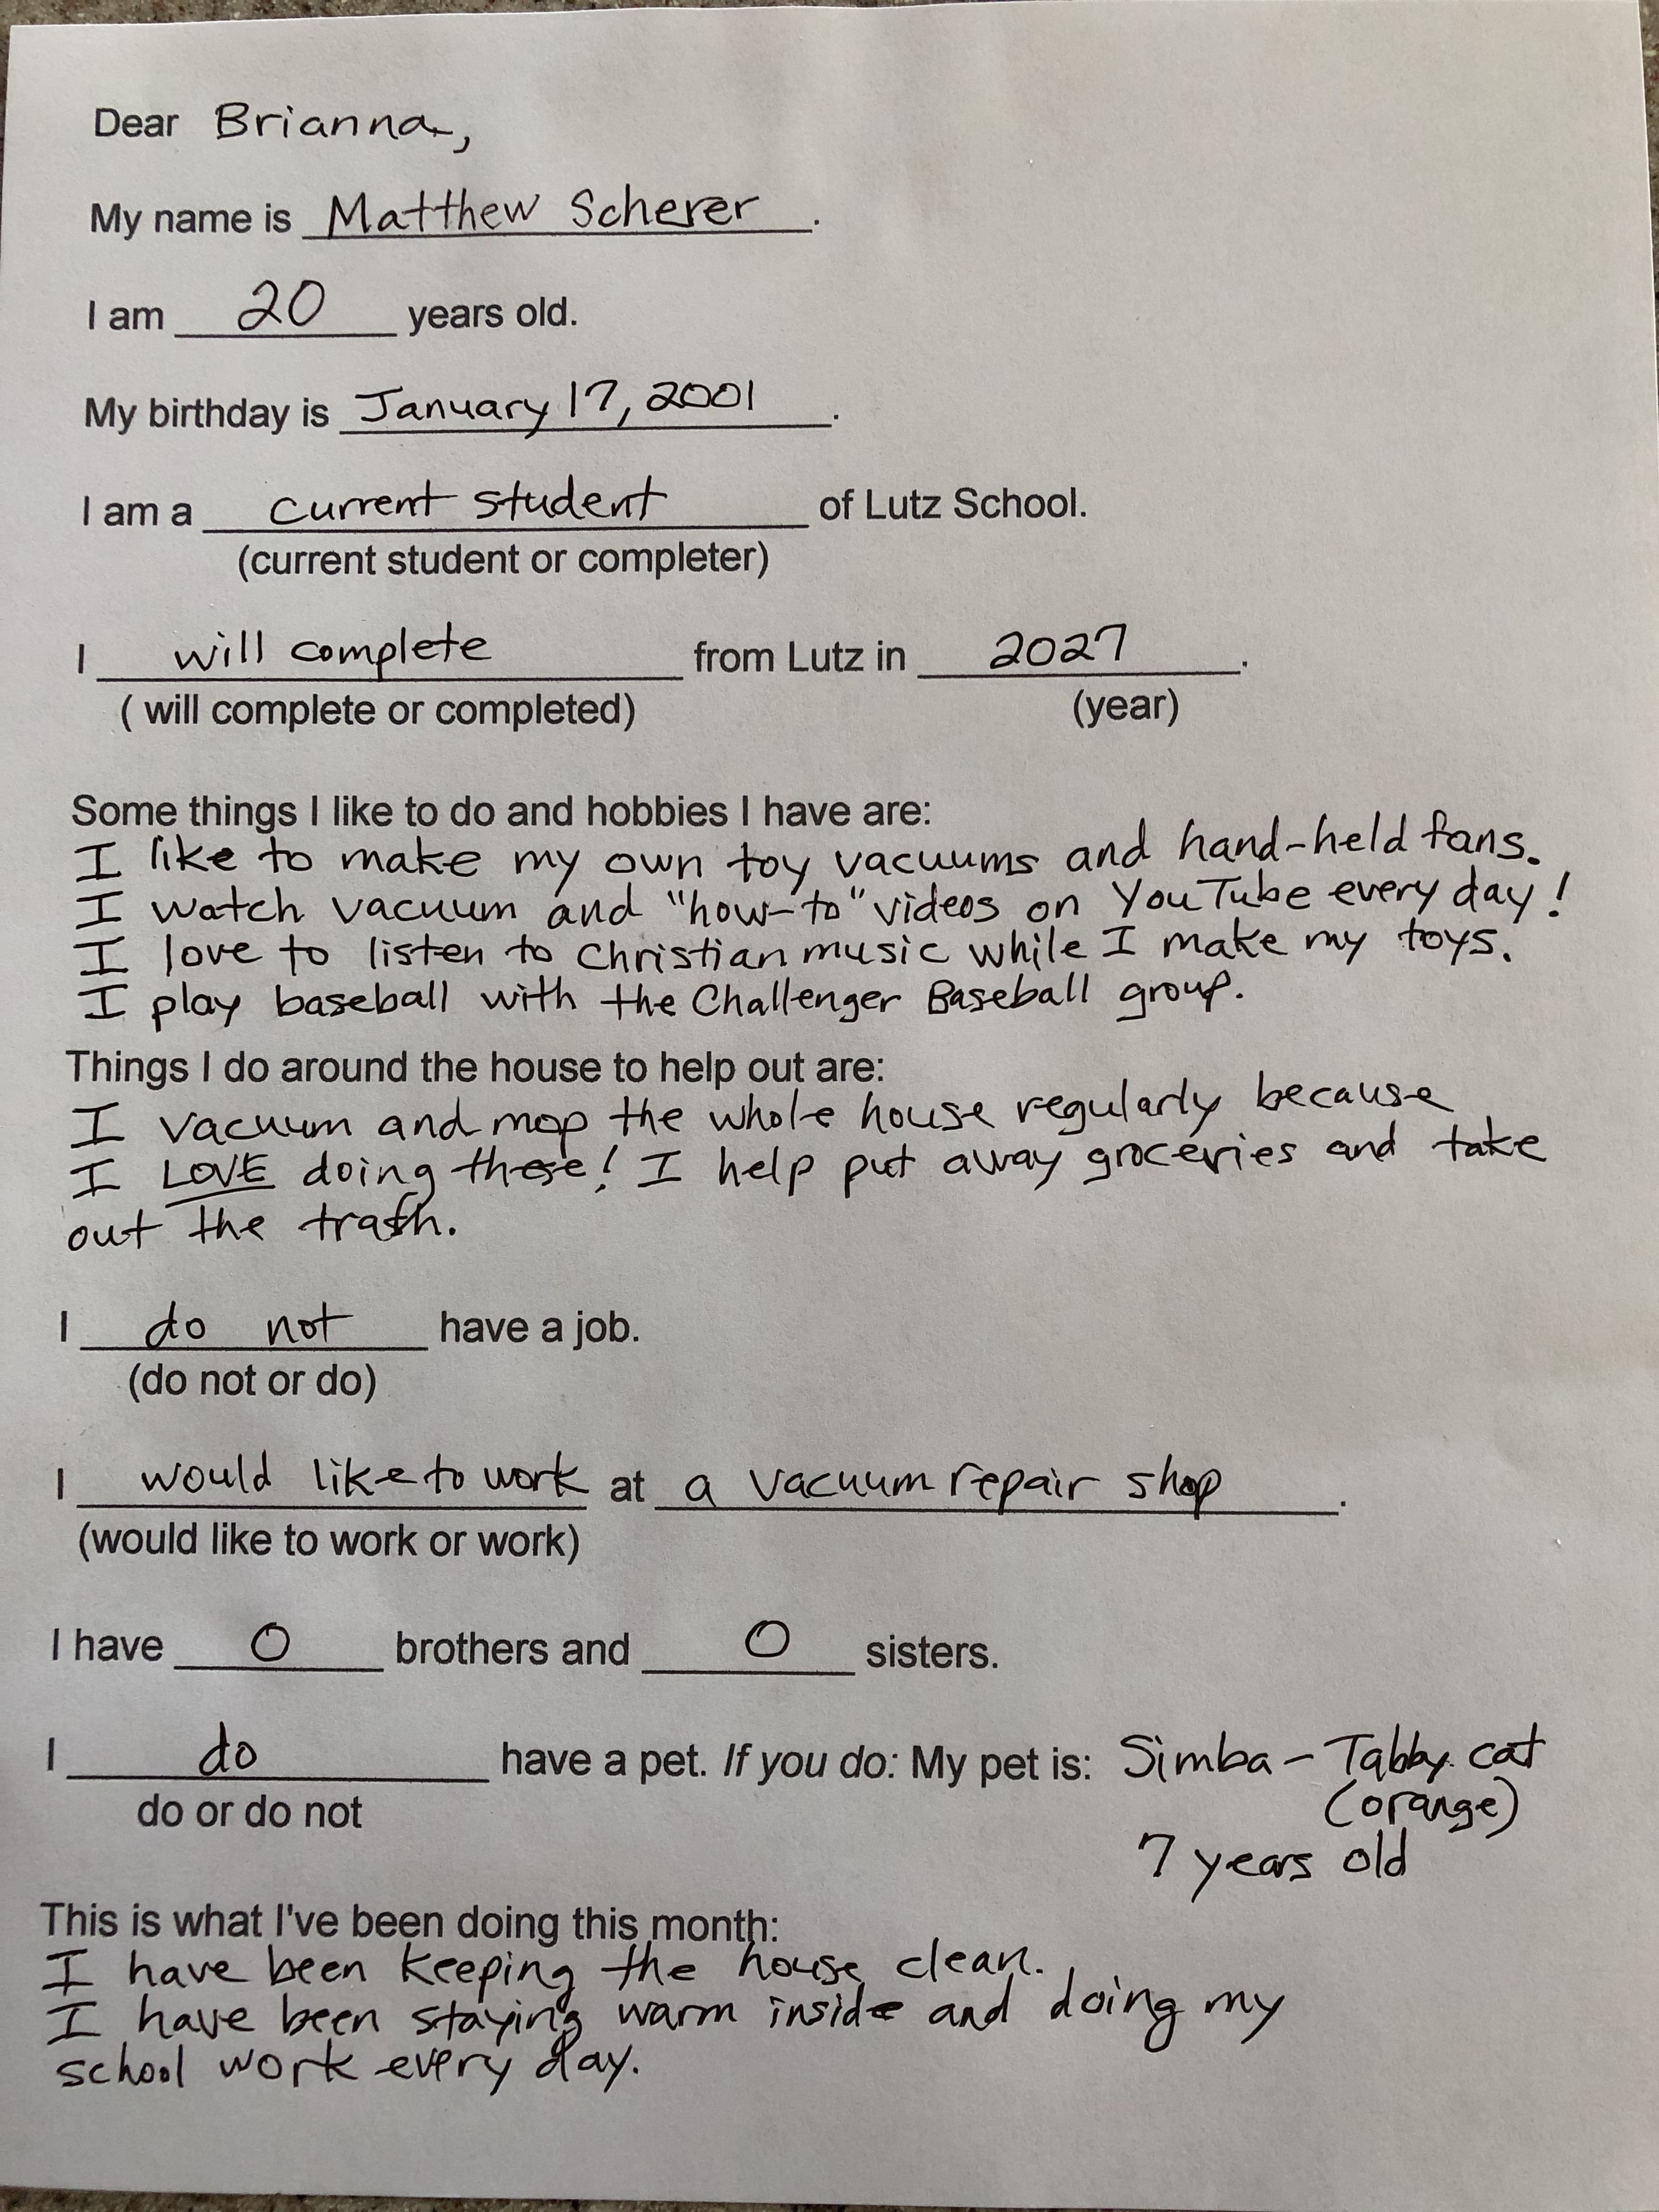 Dear Brianna,
My name is Matthew Scherer.
I am 20 years old.
My birthday is January 17, 2001.
I am a current student of Lutz School.
(current student or completer)
I will complete from Lutz in 2027.
( will complete or completed) (year)
Some things I like to do and hobbies I have are:
I like to make my own toy vacuums and hand-held fans.
I watch vacuum and "how-to" videos on YouTube every day!
I love to listen to Christian music while I make my toys.
I play baseball with the Challenger Baseball group.
Things I do around the house to help out are:
I vacuum and mop the whole house regularly because
I LOVE doing these! I help put away groceries and take
out the trash.
I do not have a job.
(do not or do)
I would like to work at a vacuum repair shop.
(would like to work or work)
I have 0 brothers and 0 sisters.
I do have a pet. If you do: My pet is: Simba - Tabby cat
do or do not (orange)
7 years old
This is what I've been doing this month:
I have been keeping the house clean.
I have been staying warm inside and doing my
school work every day.